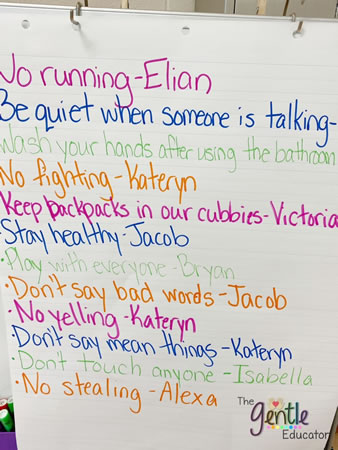 No running-Elian
Be quiet when someone is talking-
Wash your hands after using the bathroom
No fighting-Kateryn
Keep backpacks in our cubbies-Victoria
·Stay healthy-Jacob
·Play with everyone-Bryan
·Don't say bad words-Jacob
·No yelling-Kateryn
·Don't say mean things-Kateryn
·Don't touch anyone-Isabella
·No stealing-Alexa
The
gentle
Educator